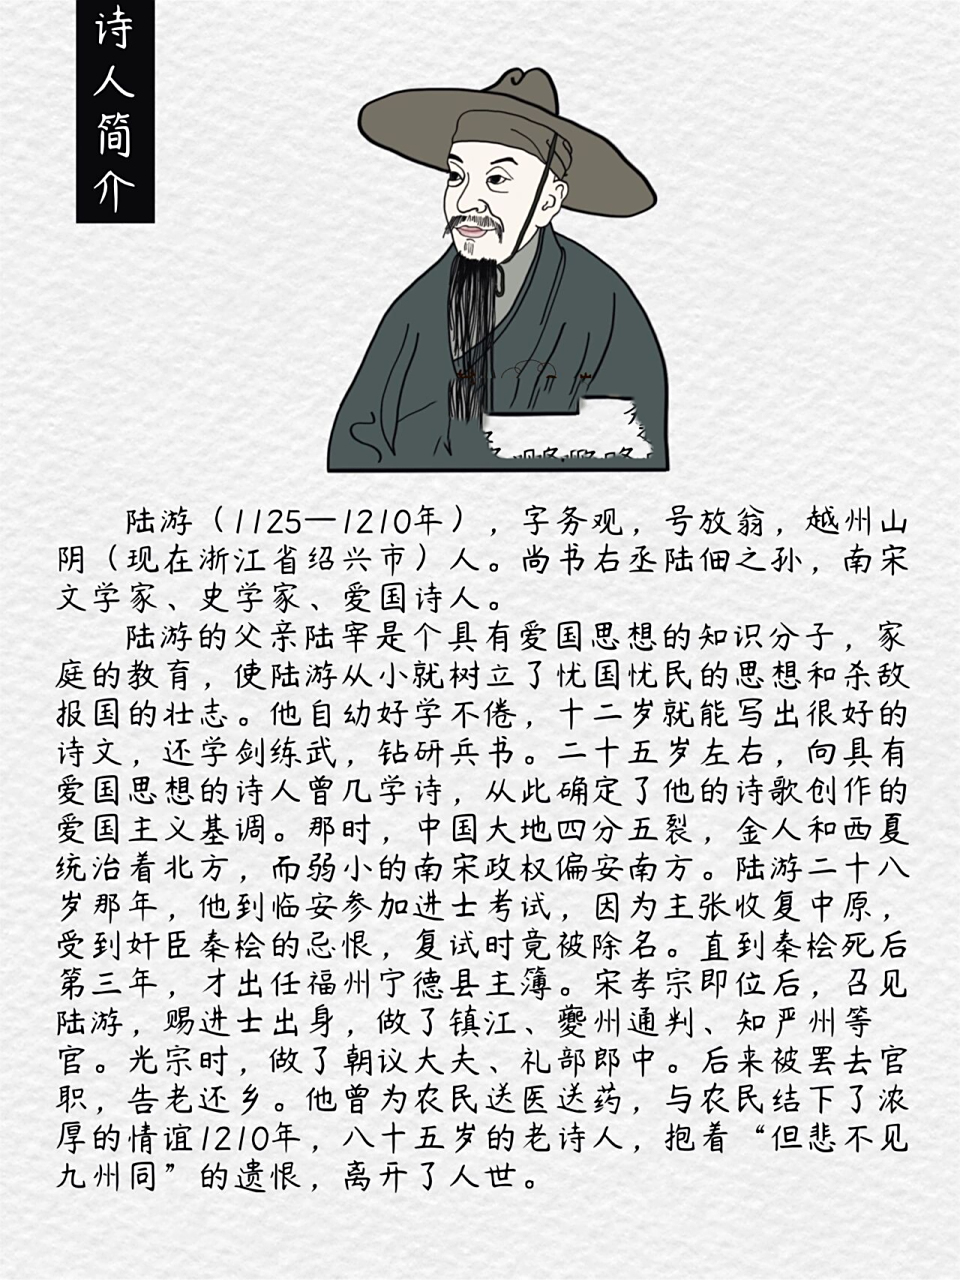 诗人简介
陆游（1125—1210年），字务观，号放翁，越州山
阴（现在浙江省绍兴市）人。尚书右丞陆佃之孙，南宋
文学家、史学家、爱国诗人。
陆游的父亲陆宰是个具有爱国思想的知识分子，家
庭的教育，使陆游从小就树立了忧国忧民的思想和杀敌
报国的壮志。他自幼好学不倦，十二岁就能写出很好的
诗文，还学剑练武，钻研兵书。二十五岁左右，向具有
爱国思想的诗人曾几学诗，从此确定了他的诗歌创作的
爱国主义基调。那时，中国大地四分五裂，金人和西夏
统治着北方，而弱小的南宋政权偏安南方。陆游二十八
岁那年，他到临安参加进士考试，因为主张收复中原，
受到奸臣秦桧的忌恨，复试时竟被除名。直到秦桧死后
第三年，才出任福州宁德县主簿。宋孝宗即位后，召见
陆游，赐进士出身，做了镇江、夔州通判、知严州等
官。光宗时，做了朝议大夫、礼部郎中。后来被罢去官
职，告老还乡。他曾为农民送医送药，与农民结下了浓
厚的情谊1210年，八十五岁的老诗人，抱着“但悲不见
九州同”的遗恨，离开了人世。